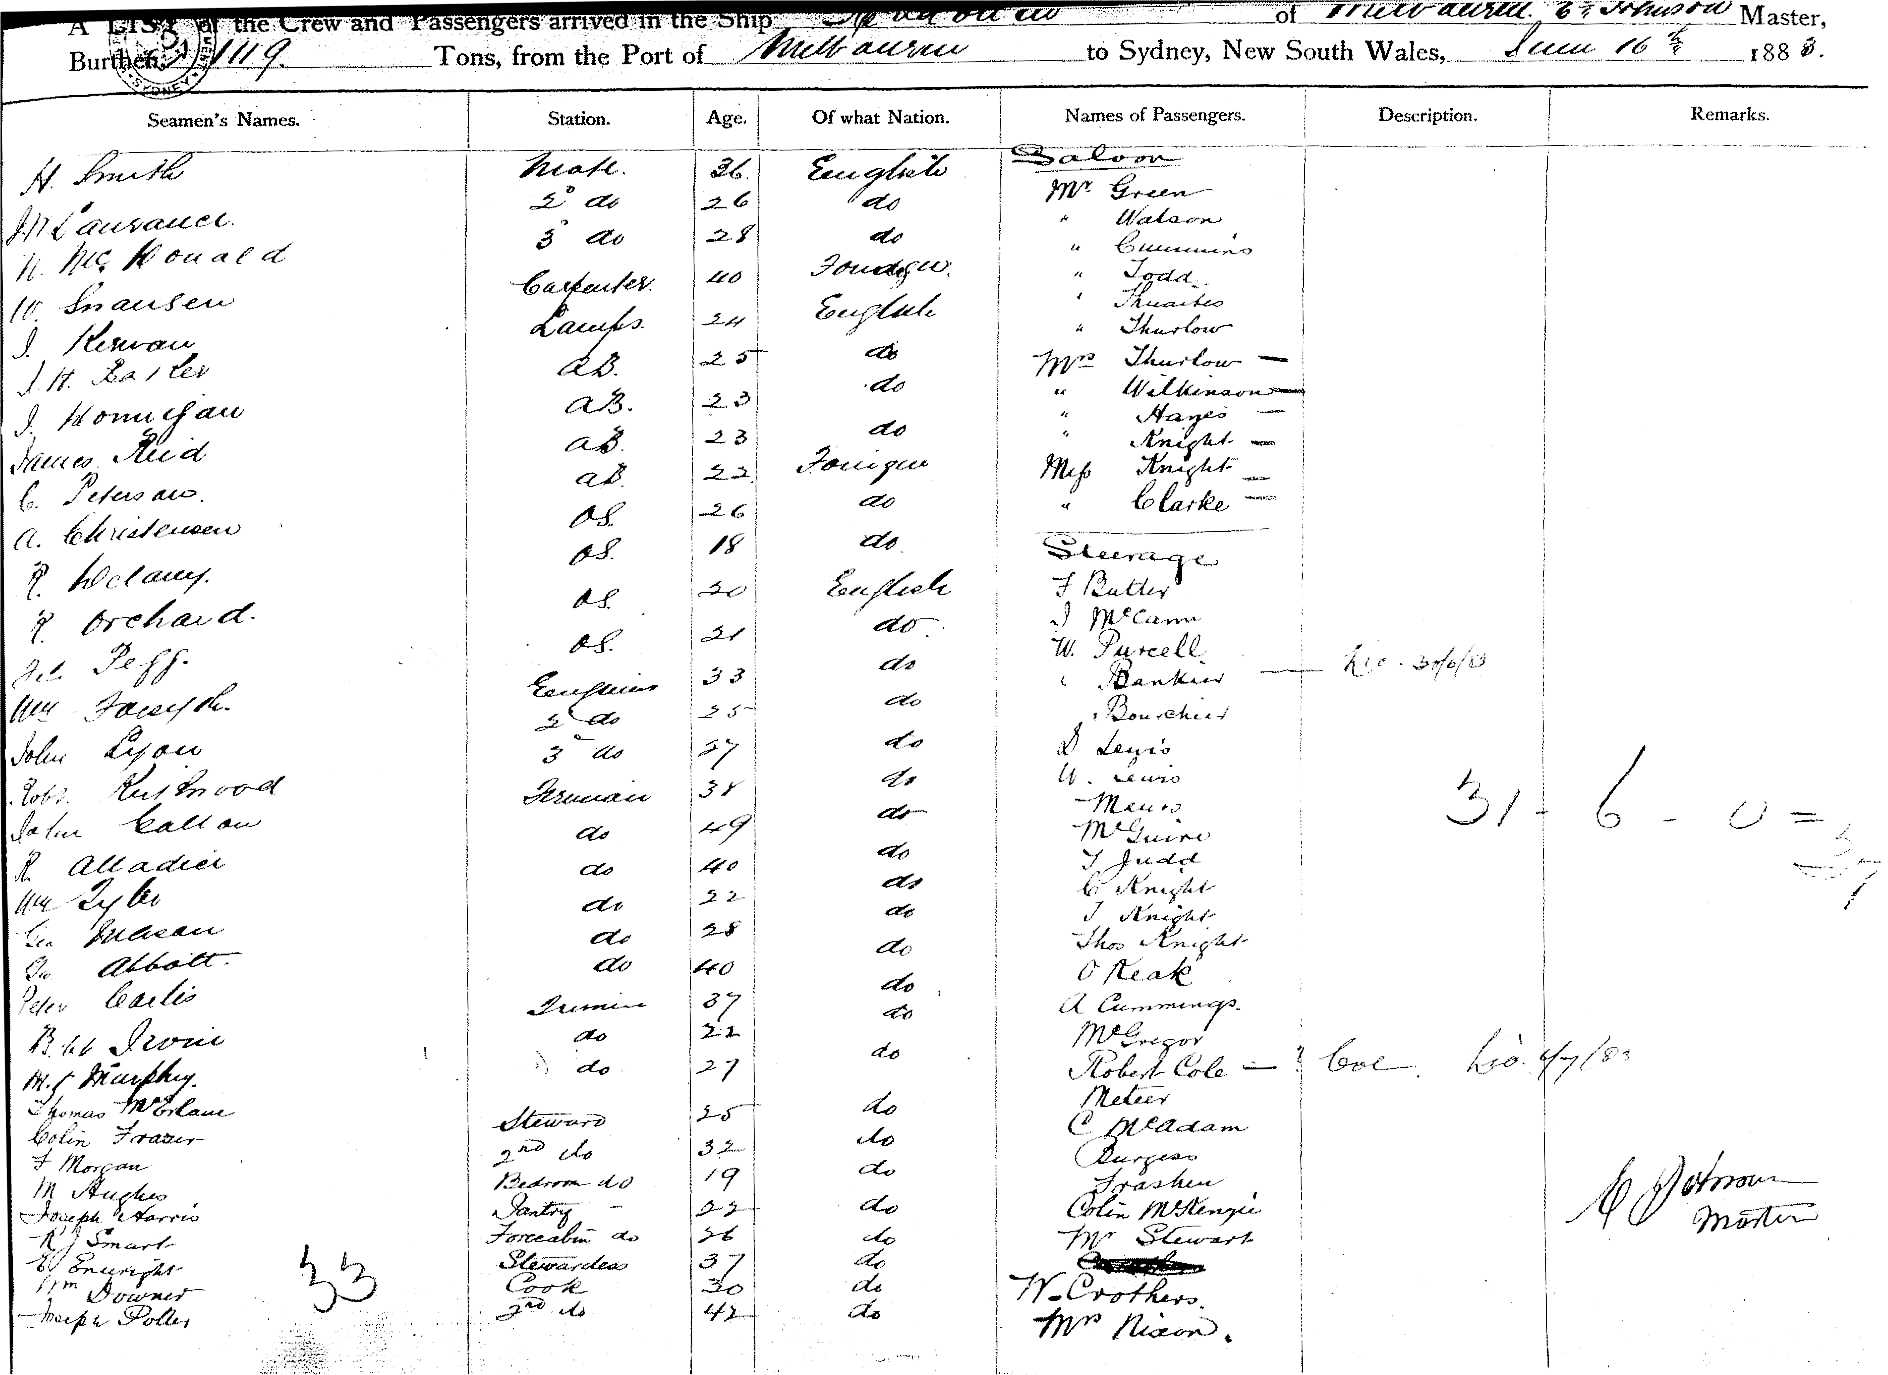 A LIST of the Crew and Passengers arrived in the Ship of Melbourne E. Johnson Master,
Burthen, 1119. Tons, from the Port of Melbourne to Sydney, New South Wales, June 16th 1883.
Seamen's Names. Station. Age. Of what Nation. Names of Passengers. Description. Remarks.
Saloon
H. Smith Mate. 36 English Mr Green
2d do 26 do " Watson
N. McDonald 3 do 28 do " Cummins
Carpenter. 40 Foreign. " Todd
J. Kerwan Lamps. 24 English ' Thwaites
" Thurlow
AB. 25 do Mrs Thurlow —
AB. 23 do " Wilkinson —
" Hayes —
James Reid AB. 23 do " Knight —
C. Peterson. AB. 22 Foreign Miss Knight —
A. Christensen OS. 26 do " Clarke —
R. Delany. OS. 18 do Steerage
R. Orchard. OS. 20 English F Butler
J McCann
Peff. OS. 21 do W. Purcell
Wm Forsyth. Engineer 33 do " Bankier — 30/6/83
John Lyon 2 do 25 do " Bourchier
Robt. Kirkwood 3 do 27 do D Lewis
John Callan Fireman 38 do W. Lewis
Manis
R. do 49 do McGuire
31 - 6 - 0 = 37
Wm Tyler do 40 do J Judd
Geo Mason do 22 do C Knight
Abbott. do 28 do J Knight
Peter do 40 do Thos Knight
O Keak
Robt Irvine Trimmer 37 do A Cummings.
M. J Murphy. do 22 do McGregor
Thomas McErlane do 27 do Robert Cole — Cole.
Meteer
Colin Frazer Steward 25 do C McAdam
F Morgan 2nd do 32 do Burgess
M Hughes Bedroom do 19 do Trashen
Joseph Harris Pantry - 22 do Colin McKenzie
R J Smart Forecabin do 26 do Mr Stewart
E Enwright Stewardess 37 do
Wm Downer Cook 30 do W. Crothers.
Joseph Potter 2nd do 42 do Mrs Nixon.
33
E Johnson
Master